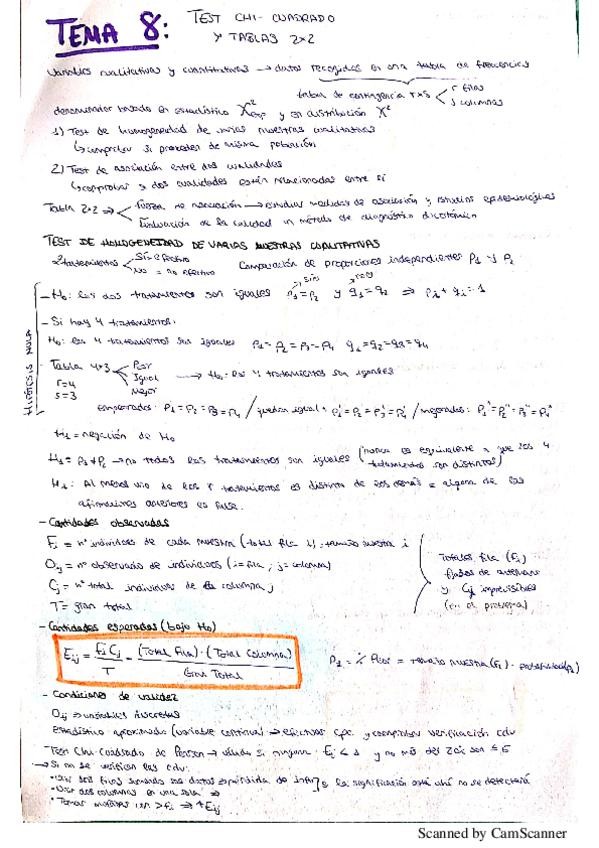 TEMA 8:
TEST CHI-CUADRADO
Y TABLAS 2x2
Variables cualitativas y cuantitativas → datos recogidos en una tabla de frecuencias
tabla de contingencia rxs < r filas
s columnas
denominador basado en estadístico χ²exp y en distribución χ²
1) Test de homogeneidad de varias muestras cualitativas
↳ comprobar si proceden de misma población
2) Test de asociación entre dos cualidades
↳ comprobar si dos cualidades están relacionadas entre sí
Tabla 2x2 → asociación → estudiar medidas de asociación y estudios epidemiológicos
Evaluación de la calidad un método de diagnóstico dicotómico
TEST DE HOMOGENEIDAD DE VARIAS MUESTRAS CUALITATIVAS
2 tratamientos < Sí = efectivo
No = no efectivo
Comparación de proporciones independientes P1 y P2
HIPÓTESIS NULA
- H0: los dos tratamientos son iguales p1=p2 y q1=q2 ⇒ pi+qi=1
- Si hay 4 tratamientos:
H0: los 4 tratamientos son iguales p1=p2=p3=p4 q1=q2=q3=q4
- Tabla 4x3 Peor
Igual
Mejor
r=4
s=3
→ H0: los 4 tratamientos son iguales
empeorados: p1=p2=p3=p4 / quedan igual: p1'=p2'=p3'=p4' / mejorados: p1''=p2''=p3''=p4''
H1 = negación de H0
H1 = p1≠p2 → no todos los tratamientos son iguales (nunca es equivalente a que los 4
tratamientos son distintos)
H1: Al menos uno de los r tratamientos es distinto de los demás o alguna de las
afirmaciones anteriores es falsa.
- Cantidades observadas
Fi = nº individuos de cada muestra (total fila i), tamaño muestra i
Oij = nº observado de individuos (i=fila; j=columna)
Cj = nº total individuos de la columna j
T = gran total
Totales fila (Fi)
fijados de antemano
y Cj imprevisibles
- Cantidades esperadas (bajo H0)
Eij = Fi Cj / T = (Total Fila)·(Total Columna) / Gran Total
P1 = % Peor = tamaño muestra(Fi) · probabilidad(pi)
- Condiciones de validez
Oij → variables discretas
Estadístico aproximado (variable continua) → efectuar cpc y comprobar verificación cdv
Test Chi-Cuadrado de Pearson → válido si ninguna Eij < 1 y no más del 20% son ≤ 5
→ Si no se verifican las cdv:
• Unir dos filas sumando sus datos
• Unir dos columnas en una sola
• Tomar muestras con > fi → ↑Eij
Scanned by CamScanner